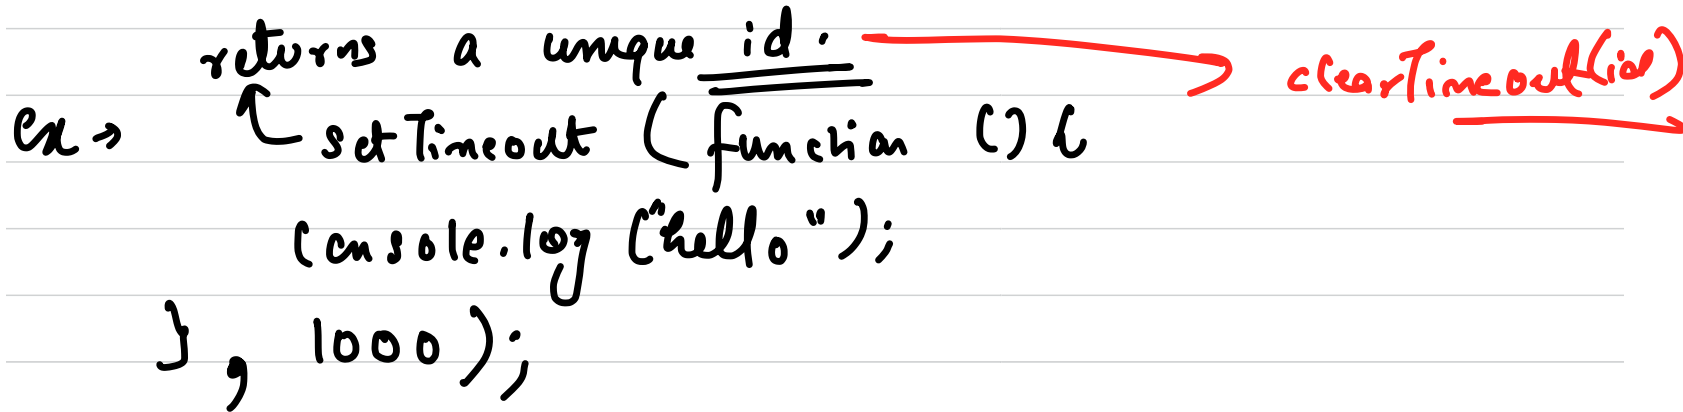 returns a unique id. → clearTimeout(id)
ex → setTimeout (function () {
console.log ("hello");
} , 1000 );